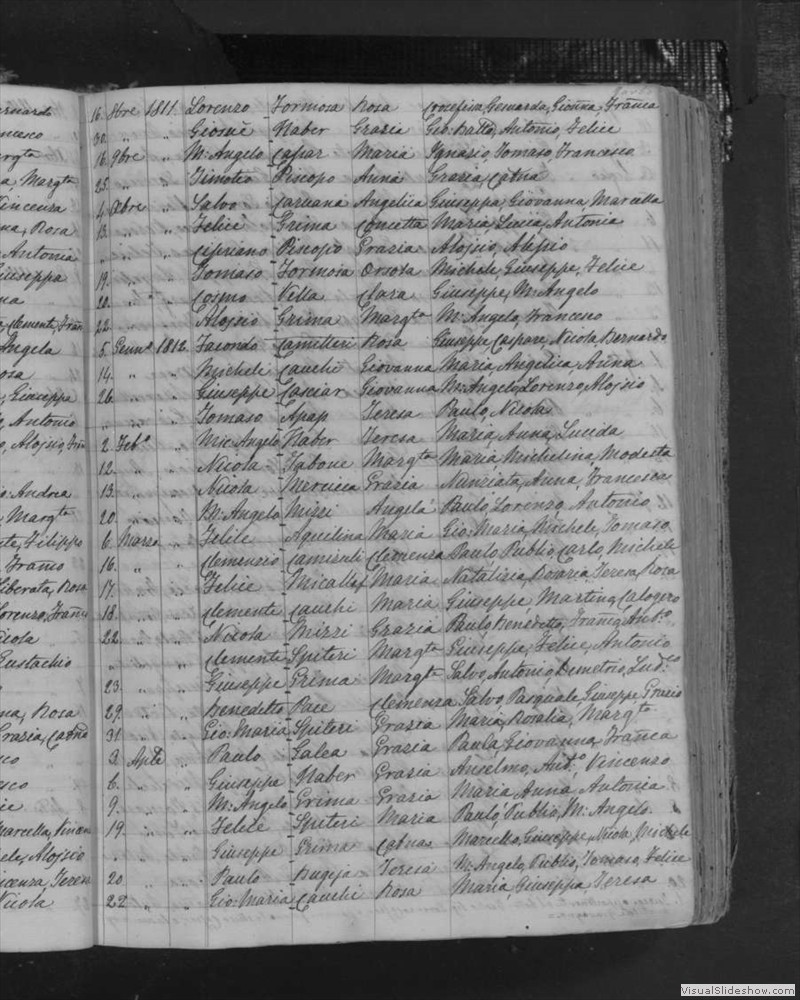 16 8bre 1811 Lorenzo Formosa Rosa Crocefissa, Genuarda, Gionna, Franca
30 " " Giosuè Haber Grazia Gio: Batta, Antonio, Felice
16 9bre " M: Angelo Caspar Maria Ignazio, Tomaso, Francesco
25 " " Timoteo Piscopo Anna Grazia, Catna
4 Xbre " Salvo Caruana Angelica Giuseppa, Giovanna, Marcella
13 " " Felice Grima Concetta Maria, Lucia, Antonia
" " " Cipriano Piscopo Grazia Aloisio, Alessio
19 " " Tomaso Formosa Orsola Michele, Giuseppe, Felice
20 " " Cosmo Vella Clara Giuseppe, M: Angelo
22 " " Aloisio Grima Margta M: Angelo, Francesco
5 Genn° 1812 Facondo Camilleri Rosa Giuseppe, Caspare, Nicola, Bernardo
14 " " Michele Cauchi Giovanna Maria, Angelica, Anna
26 " " Giuseppe Casciar Giovanna M: Angelo, Lorenzo, Aloisio
" " " Tomaso Apap Teresa Paulo, Nicola
2 Feb° " Mic: Angelo Haber Teresa Maria, Anna, Lucida
12 " " Nicola Tabone Margta Maria Michelina Modesta
13 " " Nicola Mercieca Grazia Nunziata, Anna, Francesca
20 " " M: Angelo Mizzi Angela Paulo, Lorenzo, Antonio
6 Marzo " Felice Aquilina Maria Gio: Maria, Michele, Tomaso
16 " " Clemenzio Camisuli Clemenza Paulo, Publio, Carlo, Michele
17 " " Felice Micallef Maria Natalizia, Rosaria, Teresa, Rosa
18 " " Clemente Cauchi Maria Giuseppe, Martino, Calogero
22 " " Nicola Mizzi Grazia Paulo, Benedetto, Franco, Ant°
" " " Clemente Spiteri Margta Giuseppe, Felice, Antonio
23 " " Giuseppe Grima Margta Salvo, Antonio, Demetrio, Lud:co
29 " " Benedetto Pace Clemenza Salvo, Pasquale, Giuseppe, Grazio
31 " " Gio: Maria Spiteri Grazia Maria, Rosalia, Margta
3 Aple " Paulo Galea Grazia Paula, Giovanna, Franca
6 " " Giuseppe Haber Grazia Anselmo, Ant°, Vincenzo
9 " " M: Angelo Grima Grazia Maria, Anna, Antonia
19 " " Felice Spiteri Maria Paulo, Publio, M: Angelo
" " " Giuseppe Grima Catna Marcello, Giuseppe, Nicola, Michele
20 " " Paulo Bugeja Teresa M: Angelo, Publio, Tomaso, Felice
22 " " Gio: Maria Cauchi Rosa Maria, Giuseppa, Teresa
VisualSlideshow.com